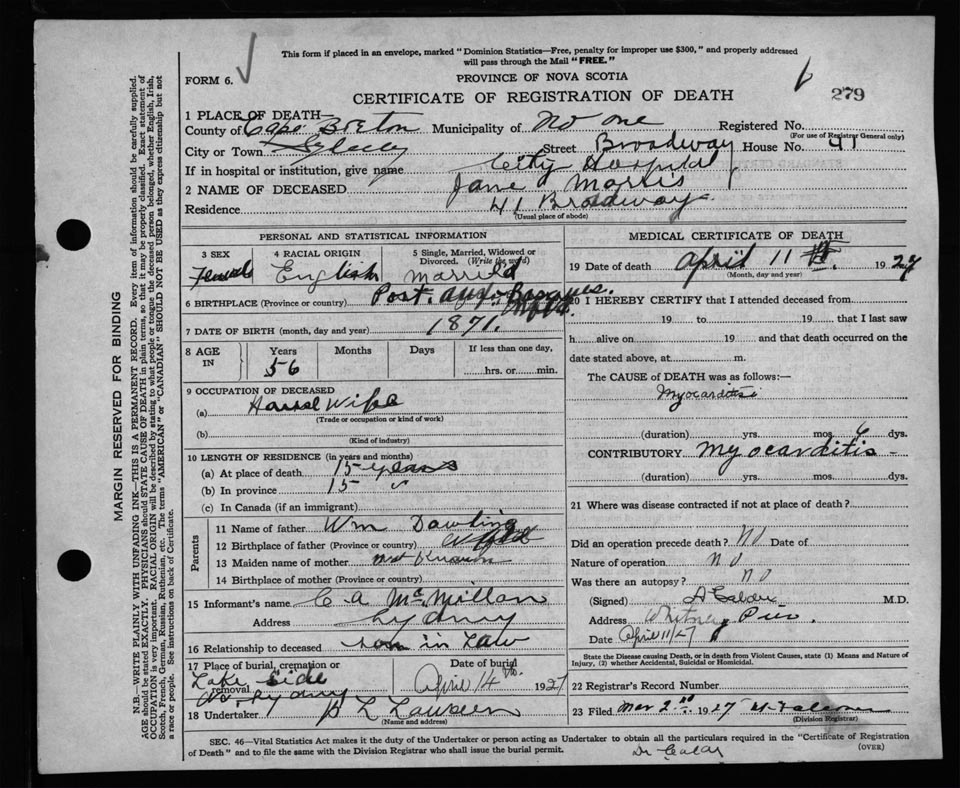 This form if placed in an envelope, marked "Dominion Statistics—Free, penalty for improper use $300," and properly addressed
will pass through the Mail "FREE."
FORM 6.
PROVINCE OF NOVA SCOTIA
279
CERTIFICATE OF REGISTRATION OF DEATH
1 PLACE OF DEATH
County of Cape Breton Municipality of No one Registered No.
(For use of Registrar General only)
City or Town Sydney Street Broadway House No. 41
If in hospital or institution, give name City Hospital
2 NAME OF DECEASED Jane Morris
Residence 41 Broadway
(Usual place of abode)
PERSONAL AND STATISTICAL INFORMATION
3 SEX Female
4 RACIAL ORIGIN English
5 Single, Married, Widowed or Divorced. (Write the word) Married
6 BIRTHPLACE (Province or country) Port aux Basques. Nfld.
7 DATE OF BIRTH (month, day and year) 1871.
8 AGE IN Years 56 Months Days If less than one day, hrs. or min.
9 OCCUPATION OF DECEASED
(a) House Wife
(Trade or occupation or kind of work)
(b)
(Kind of industry)
10 LENGTH OF RESIDENCE (in years and months)
(a) At place of death 15 years
(b) In province 15 "
(c) In Canada (if an immigrant)
Parents
11 Name of father Wm Dowling
12 Birthplace of father (Province or country) Nfld
13 Maiden name of mother not known
14 Birthplace of mother (Province or country)
15 Informant's name C A McMillan
Address Sydney
16 Relationship to deceased son in law
17 Place of burial, cremation or removal Lake side No. Sydney
Date of burial April 14 1927
18 Undertaker
(Name and address)
MEDICAL CERTIFICATE OF DEATH
19 Date of death April 11th. 1927
(Month, day and year)
20 I HEREBY CERTIFY that I attended deceased from
19 to 19 that I last saw
h alive on 19 and that death occurred on the
date stated above, at m.
The CAUSE of DEATH was as follows:—
Myocarditis
(duration) yrs. mos. 6 dys.
CONTRIBUTORY Myocarditis
(duration) yrs. mos. dys.
21 Where was disease contracted if not at place of death?
Did an operation precede death? No Date of
Nature of operation No
Was there an autopsy? No
(Signed) M.D.
Address Whitney Pier.
Date April 11/27
State the Disease causing Death, or in death from Violent Causes, state (1) Means and Nature of
Injury, (2) whether Accidental, Suicidal or Homicidal.
22 Registrar's Record Number
23 Filed 1927
(Division Registrar)
SEC. 46—Vital Statistics Act makes it the duty of the Undertaker or person acting as Undertaker to obtain all the particulars required in the "Certificate of Registration
of Death" and to file the same with the Division Registrar who shall issue the burial permit.
(OVER)
MARGIN RESERVED FOR BINDING
N.B.—WRITE PLAINLY WITH UNFADING INK—THIS IS A PERMANENT RECORD. Every item of information should be carefully supplied.
AGE should be stated EXACTLY. PHYSICIANS should STATE CAUSE OF DEATH in plain terms, so that it may be properly classified. Exact statement of
OCCUPATION is very important. RACIAL ORIGIN will be described by stating to what people or tongue the deceased person belonged, whether English, Irish,
Scotch, French, German, Russian, Ruthenian, etc. The terms "AMERICAN" or "CANADIAN" SHOULD NOT BE USED as they express citizenship but not
a race or people. See instructions on back of Certificate.